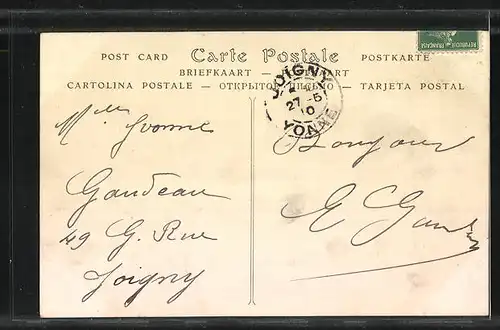 POST CARD Carte Postale POSTKARTE
BRIEFKAART —
CARTOLINA POSTALE — ОТКРЫТОЕ ПИСЬМО — TARJETA POSTAL
REPUBLIQUE FRANÇAISE
JOIGNY
27 -5
10
YONNE
Mlle Yvonne
Gaudeau
49 G. Rue
Joigny
Bonjour
E Gau